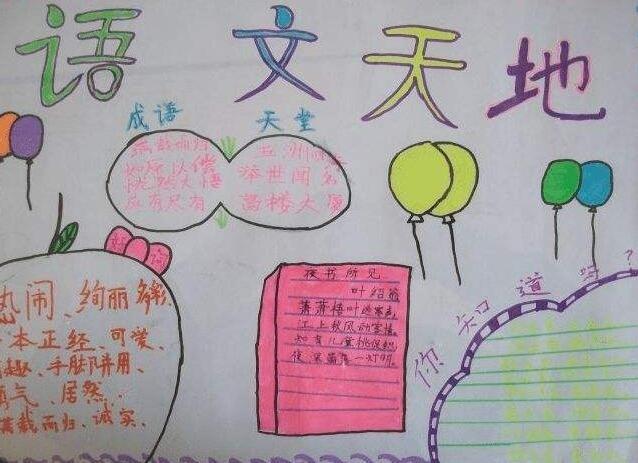 语文天地
成语 天堂
满载而归
如愿以偿
恍然大悟
应有尽有
五洲
举世闻名
高楼大厦
好词
热闹、绚丽多彩
本正经、可爱、
趣、手脚并用、
勇气、居然、
满载而归、诚实、
夜书所见
叶绍翁
萧萧梧叶送寒声,
江上秋风动客情。
知有儿童挑促织,
夜深篱落一灯明。
你知道吗？